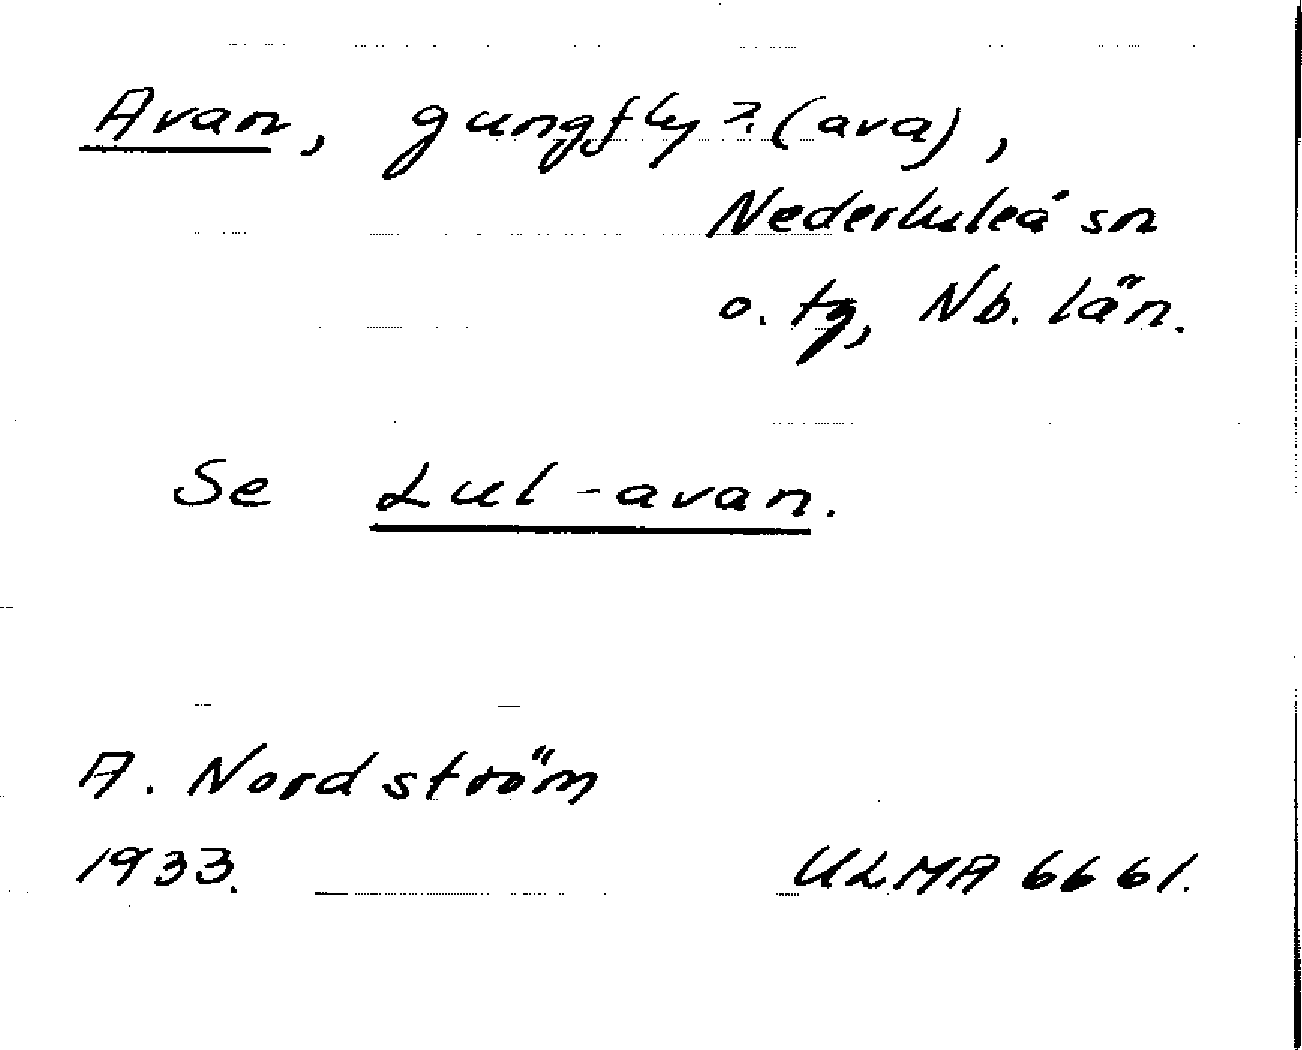 Avan, gungfly? (ava),
Nederluleå sn
o. tg, Nb. län.
Se Lul-avan.
A. Nordström
1933. ULMA 6661.